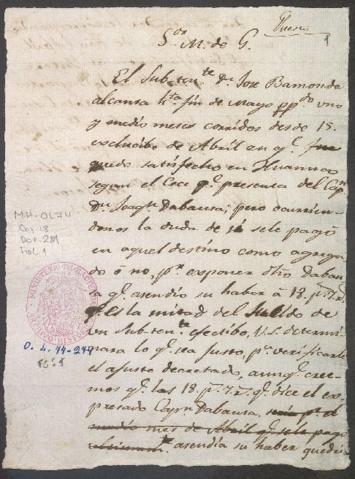 Sres M. de G.
1
El Subtente Dn Jose Bamonde
alcansa hta fin de Mayo ppdo uno
y medio meses corridos desde 15.
exclusibe de Abril en q.
quedó satisfecho en Huanuco
segun el Cese q. presenta del Capn
Dn Joaqn Dabausa; pero ocurrien-
donos la duda de si se le pagó
en aquel destino como agrega-
do ó no, pr exponer dho Dabau-
sa q. asendio su haber á 18. ps 7. rs
q. es la mitad del sueldo de
un Subtente efectibo, U.S. determi-
nara lo q. sea justo, pa verificarle
el ajuste decretado, aunq. cree-
mos q. las 18. ps 7. rs q. dice el ex-
presado Capn Dabausa,
medio mes de Abril q. se le pagó
asendia su haber
MH-OL 74
Caj. 18
Doc. 281
Fol. 1
O. L. 74-281